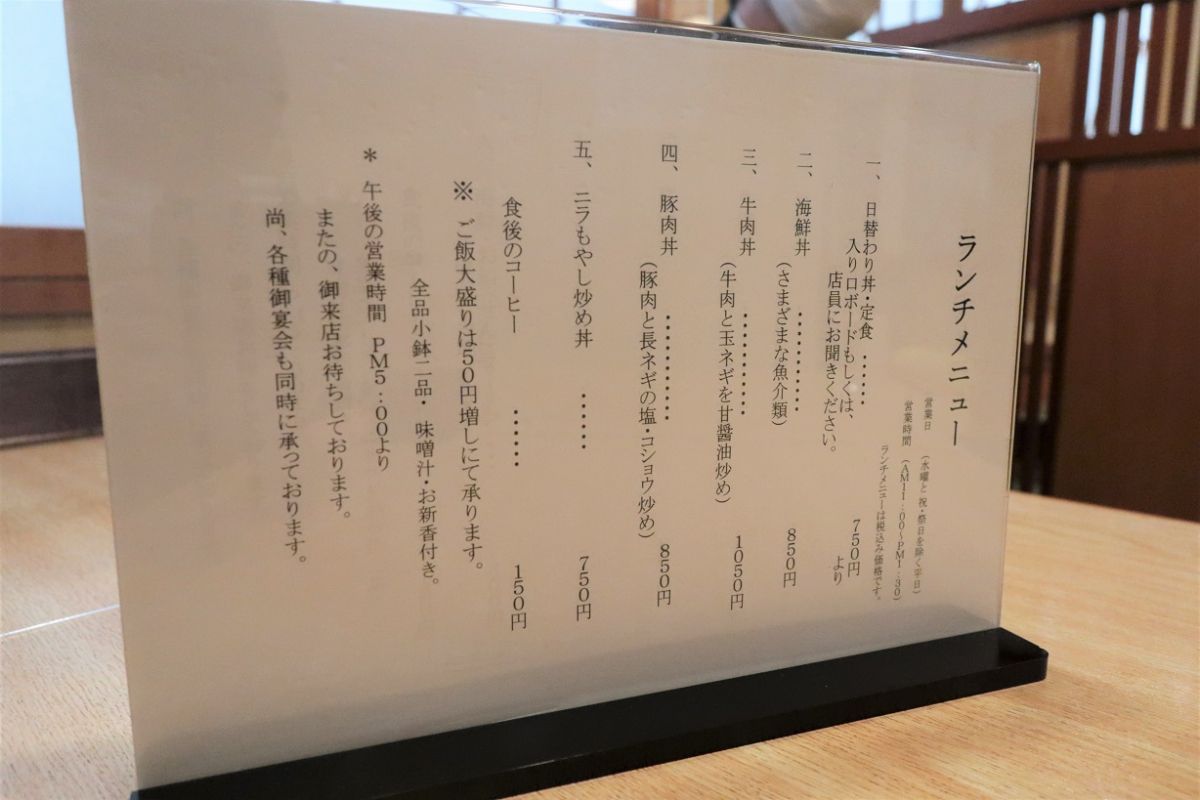 ランチメニュー
営業日 (水曜と祝・祭日を除く平日)
営業時間 (AM11:00〜PM1:30)
ランチメニューは税込み価格です。
一、日替わり丼・定食 ・・・・・・ 750円より
入り口ボードもしくは、
店員にお聞きください。
二、海鮮丼 ・・・・・・・・・ 850円
(さまざまな魚介類)
三、牛肉丼 ・・・・・・・・・ 1050円
(牛肉と玉ネギを甘醤油炒め)
四、豚肉丼 ・・・・・・・・・ 850円
(豚肉と長ネギの塩・コショウ炒め)
五、ニラもやし炒め丼 ・・・・・ 750円
食後のコーヒー ・・・・・ 150円
※ ご飯大盛りは50円増しにて承ります。
全品小鉢二品・味噌汁・お新香付き。
* 午後の営業時間 PM5:00より
またの、御来店お待ちしております。
尚、各種御宴会も同時に承っております。